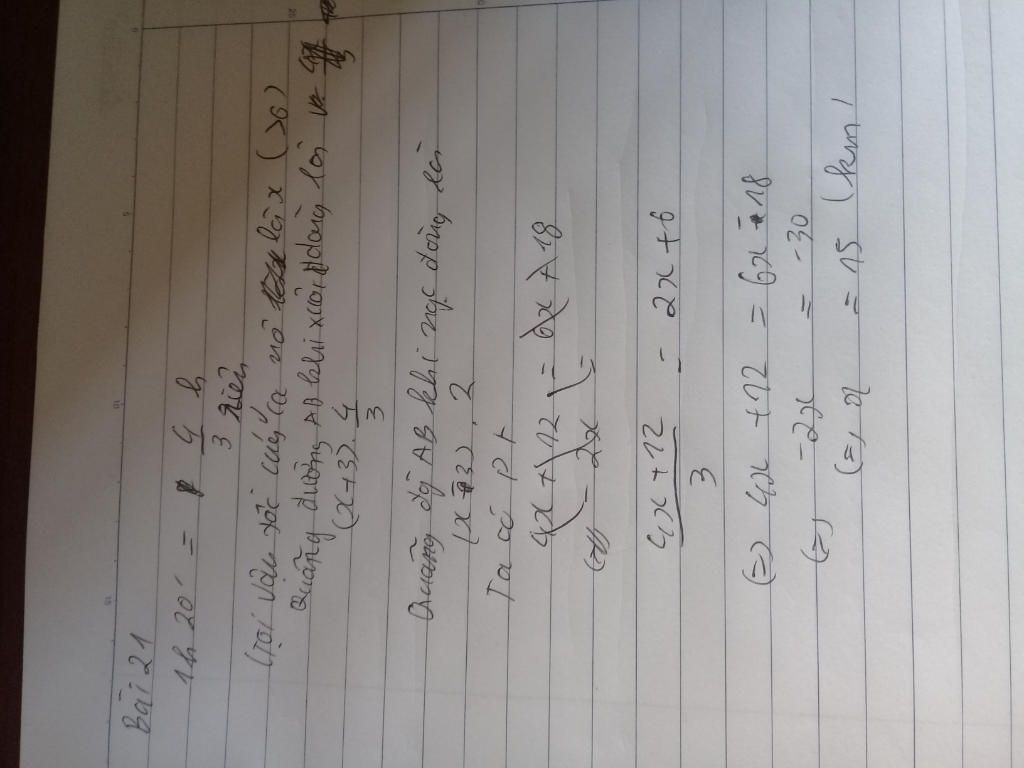 Bài 21
1h 20' = 4/3 h
Gọi vận tốc cuả ca nô riêng là x (>0)
Quãng đường AB khi xuôi dòng là
(x+3). 4/3
Quãng đg AB khi ngc dòng là
(x-3). 2
Ta có pt
4x + 12 = 6x + 18
(=) - 2x =
4x + 12 / 3 = 2x + 6
(=) 4x + 12 = 6x - 18
(=) -2x = -30
(=) x = 15 (km)